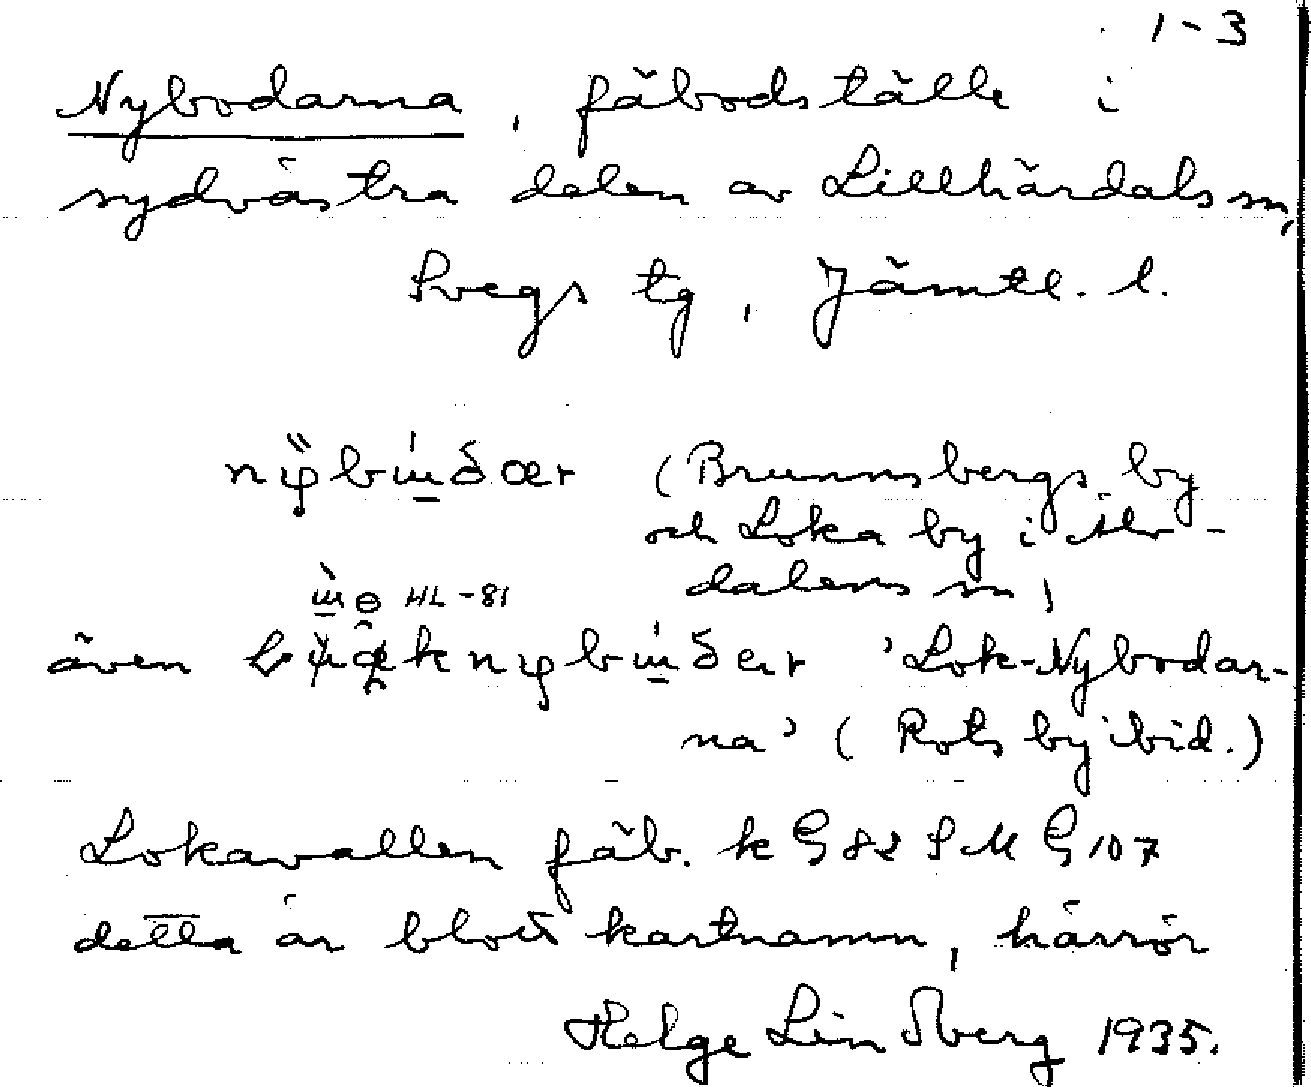 1-3
Nybodarna, fäbodställe i
sydvästra delen av Lillhärdals sn,
Svegs tg, Jämtl. l.
(Brunnsbergs by
och Loka by i Älv-
dalens sn)
HL -81
även 'Lok-Nybodar-
na' (Rots by ibid.)
Lokavallen fäb. k G 82 S M G 107
detta är blott kartnamn, härrör
Helge Lindberg 1935.